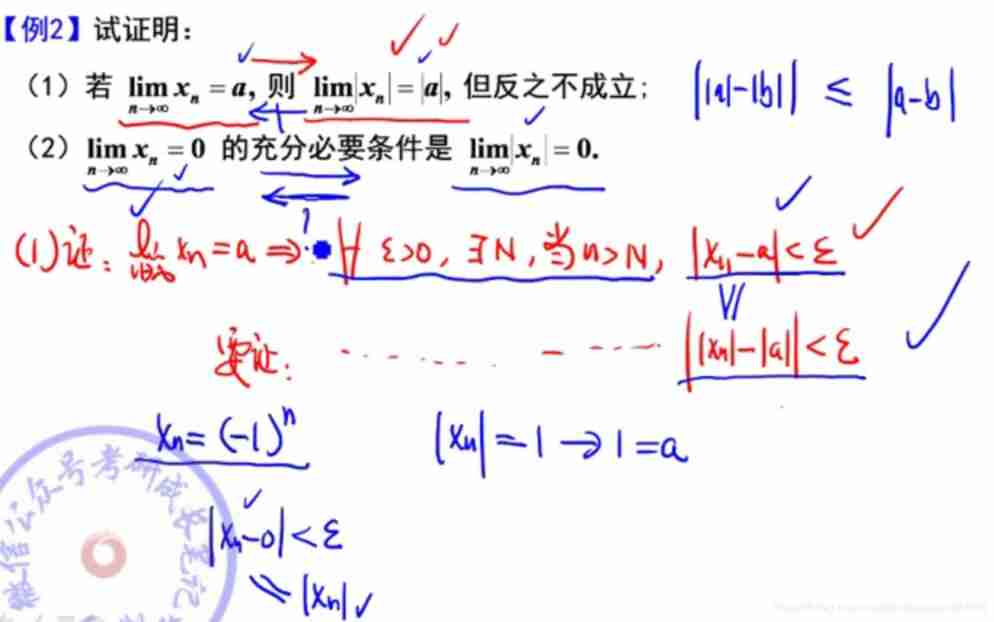 【例2】试证明：
（1）若 lim_{n→∞} xₙ = a, 则 lim_{n→∞} |xₙ| = |a|, 但反之不成立；
||a|-|b|| ≤ |a-b|
（2）lim_{n→∞} xₙ = 0 的充分必要条件是 lim_{n→∞} |xₙ| = 0.
(1)证: lim_{n→∞} xₙ = a ⇒ ∀ ε>0, ∃N, 当n>N, |xₙ-a|<ε
要证: ||xₙ|-|a||<ε
xₙ=(-1)ⁿ |xₙ|=1→1=a
|xₙ-0|<ε
|xₙ|
微信公众号考研成长笔记